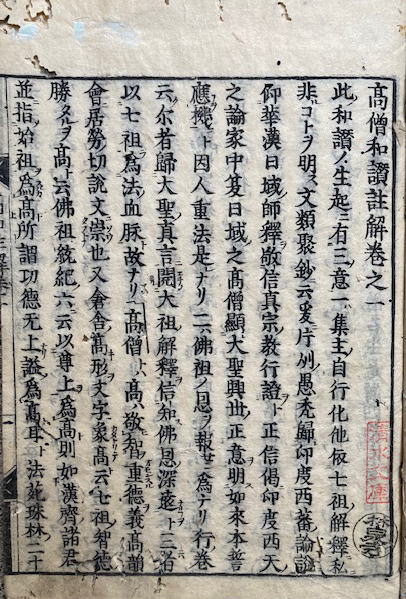 高僧和讃註解卷之一
此和讃ノ生起ニ有三意一集主自行化他依七祖解釋私
非コトヲ明ス文類聚鈔云爰片州愚禿歸印度西蕃論證
仰華漢日域師釋敬信真宗教行證ト正信偈印度西天
之論家中夏日域之高僧顯大聖興世正意明如來本誓
應機ト因人重法是ナリ二ニ佛祖ノ恩ヲ報セン為ナリ行卷
云尒者歸大聖真言閲大祖解釋信知佛恩深遠ト三ニ
以七祖為法血脉故ナリ高僧トハ高ハ敬智重德義高韻
會居勞切說文崇也又倉舍高形文字象高云七祖智德
勝タルヲ高ト云佛祖統紀六云以尊上為高則如漢齊諸君
並指始祖為高所謂功德无上謚為高耳ト法苑珠林二十